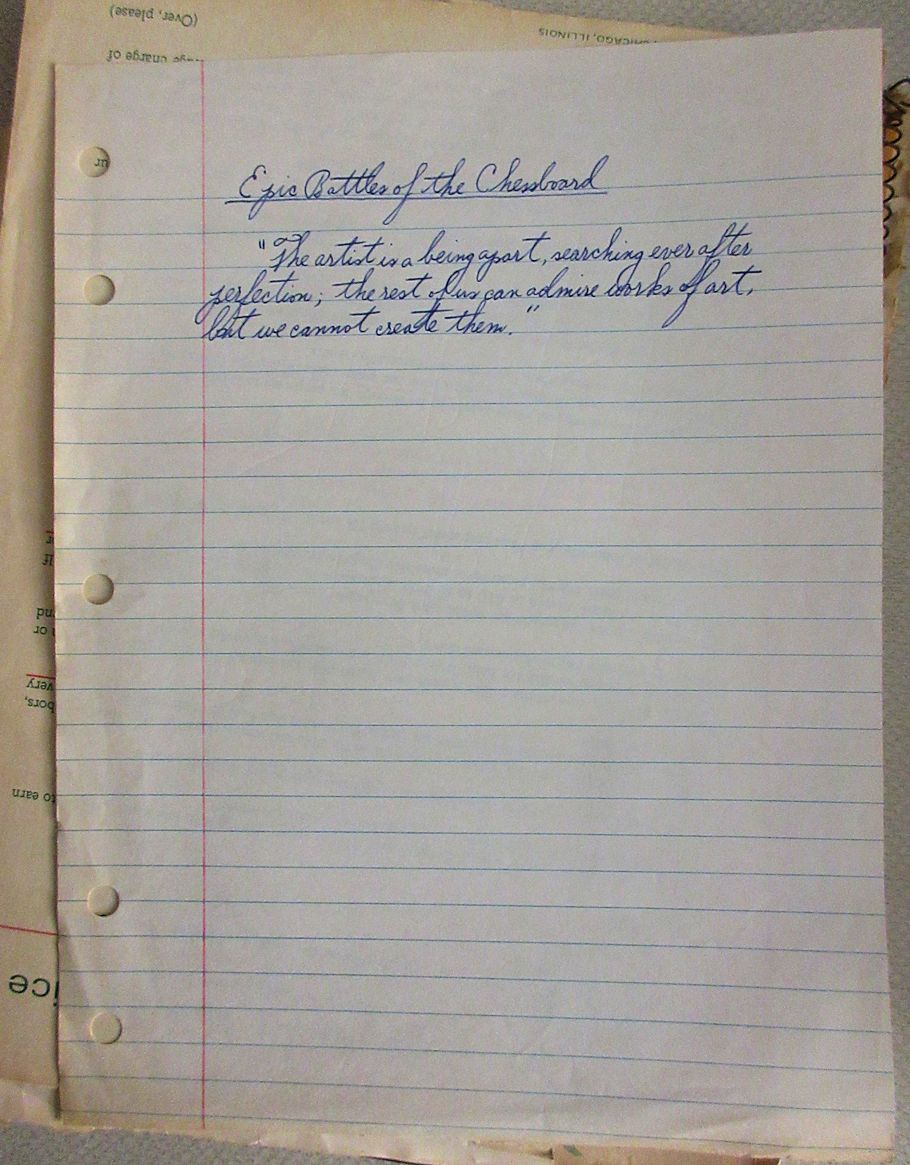 (Over, please)
CHICAGO, ILLINOIS
charge of
ur
Epic Battles of the Chessboard
"The artist is a being apart, searching ever after
perfection; the rest of us can admire works of art,
but we cannot create them."
or
very
bors,
to earn
ice